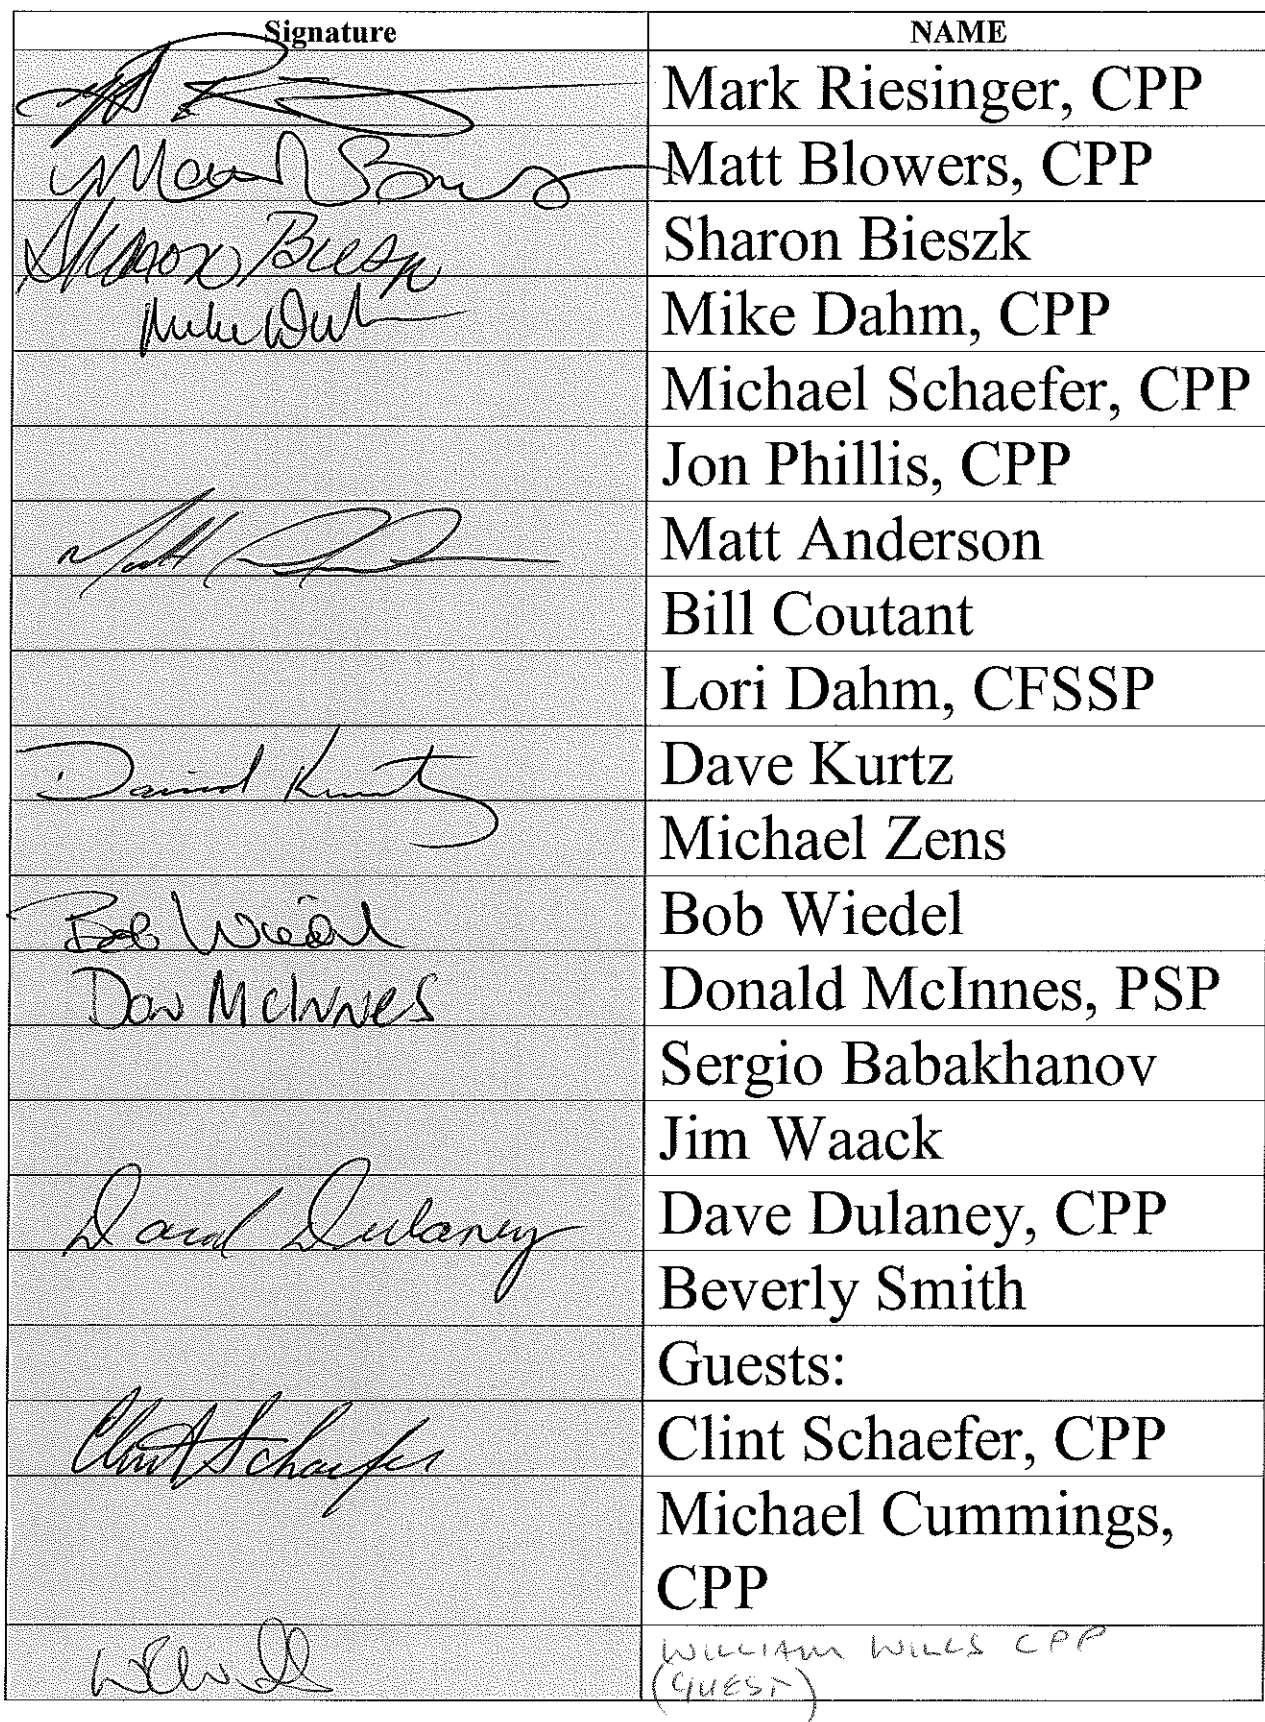 Signature NAME
Mark Riesinger, CPP
Matt Blowers, CPP
Sharon Bieszk Sharon Bieszk
Mike Dahm Mike Dahm, CPP
Michael Schaefer, CPP
Jon Phillis, CPP
Matt Matt Anderson
Bill Coutant
Lori Dahm, CFSSP
David Kurtz Dave Kurtz
Michael Zens
Bob Wiedel Bob Wiedel
Don McInnes Donald McInnes, PSP
Sergio Babakhanov
Jim Waack
David Dulaney Dave Dulaney, CPP
Beverly Smith
Guests:
Clint Schaefer Clint Schaefer, CPP
Michael Cummings,
CPP
WILLIAM WILLS CPP
(GUEST)